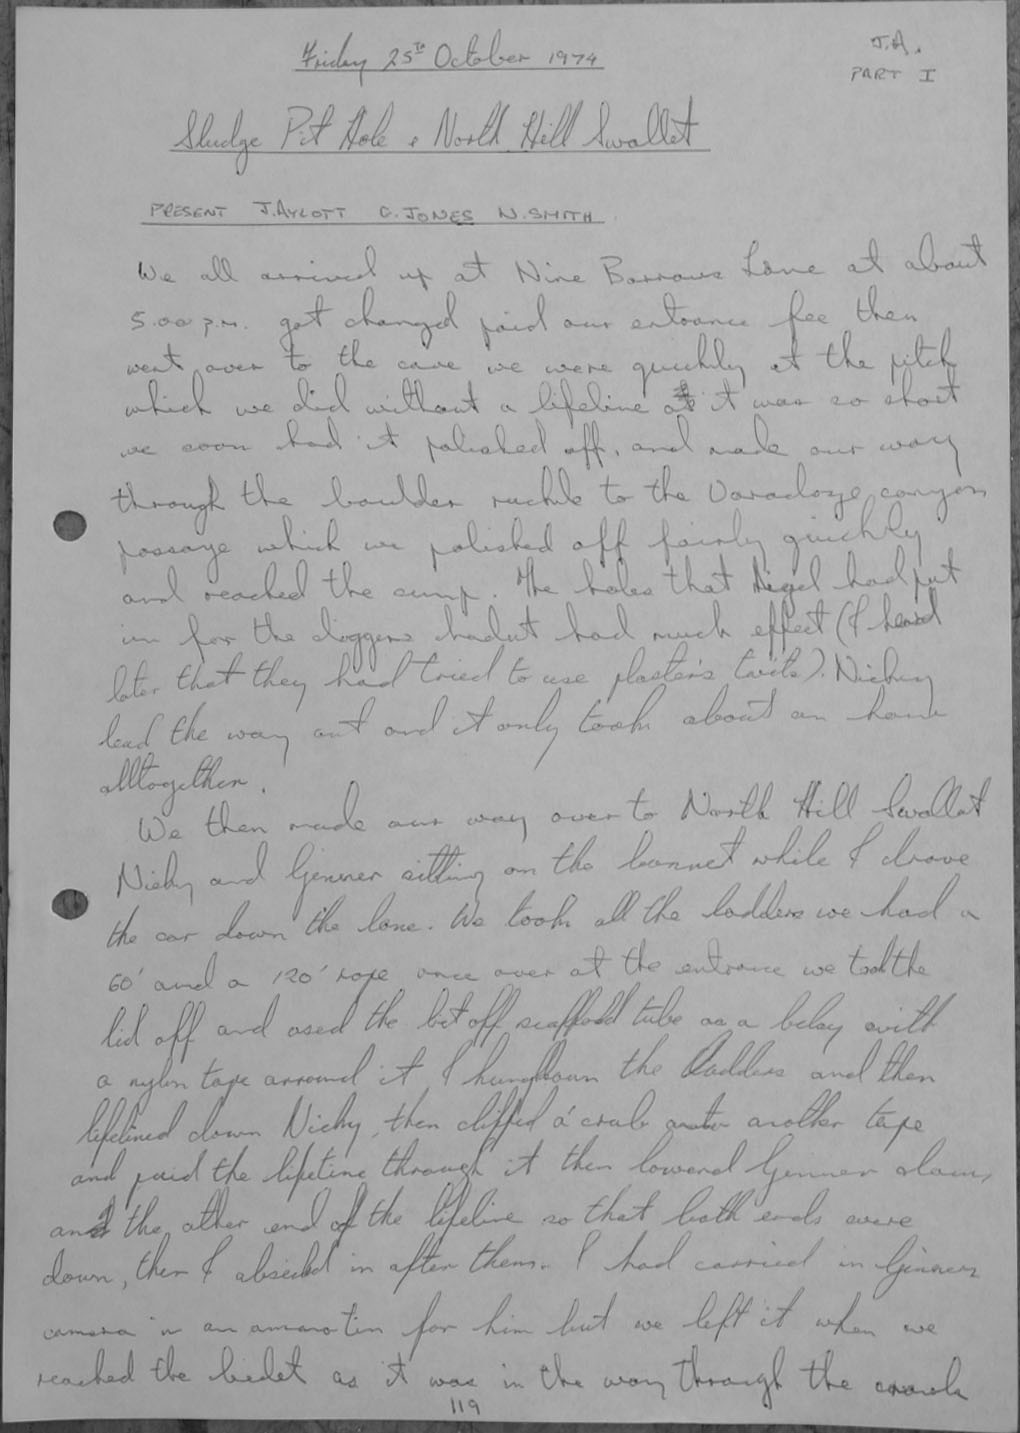 Friday 25th October 1974
J.A.
PART I
Sludge Pit Hole & North Hill Swallet
PRESENT J.AYLOTT G.JONES N.SMITH
We all arrived up at Nine Barrows Lane at about
5.00 P.M. got changed paid our entrance fee then
went over to the cave we were quickly at the pitch
which we did without a lifeline as it was so short
we soon had it polished off, and made our way
through the boulder ruckle to the canyon
passage which we polished off fairly quickly
and reached the sump. The holes that Nigel had put
in for the diggers hadnt had much effect (I heard
later that they had tried to use plasters twits). Nicky
lead the way out and it only took about an hour
alltogether.
We then made our way over to North Hill Swallet
Nicky and Ginner sitting on the bonnet while I drove
the car down the lane. We took all the ladders we had a
60' and a 120' rope once over at the entrance we took the
lid off and used the bit off scaffold tube as a belay with
a nylon tape arround it I hung down the ladders and then
lifelined down Nicky, then cliffed a 'crab onto another tape
and paid the lifeline through it then lowerd Ginner down,
and the other end of the lifeline so that both ends were
down, then I abseild in after them. I had carried in Ginners
camera in an ammo tin for him but we left it when we
reached the bidet as it was in the way through the crawls
119